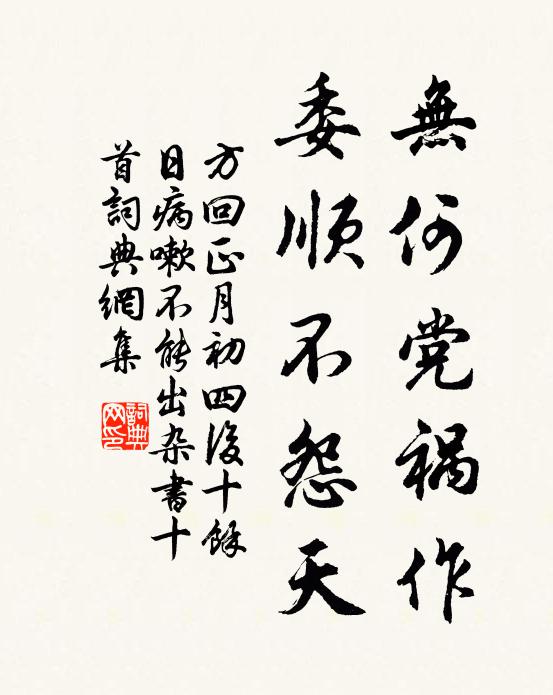 無何党禍作
委順不怨天
方回正月初四後十餘
日病嗽不能出杂書十
首詞典網集
詞典
网印